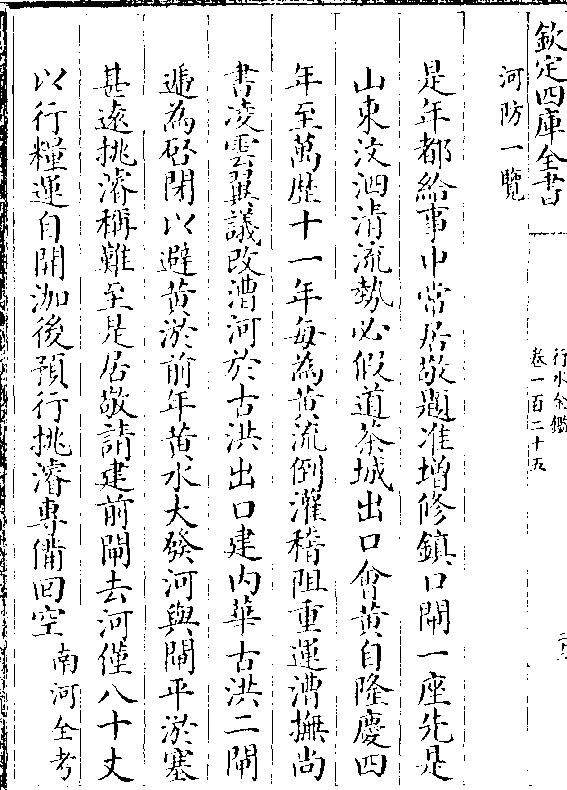 欽定四庫全書
行水金鑑
卷一百二十五
河防一覽
是年都給事中常居敬題准增修鎮口閘一座先是
山東汶泗清流勢必假道茶城出口會黃自隆慶四
年至萬歷十一年每為黃流倒灌稽阻重運漕撫尚
書凌雲翼議改漕河於古洪出口建内華古洪二閘
遞為啓閉以避黃淤前年黃水大發河與閘平淤塞
甚遠挑濬稱難至是居敬請建前閘去河僅八十丈
以行糧運自開泇後預行挑濬專備回空
南河全考